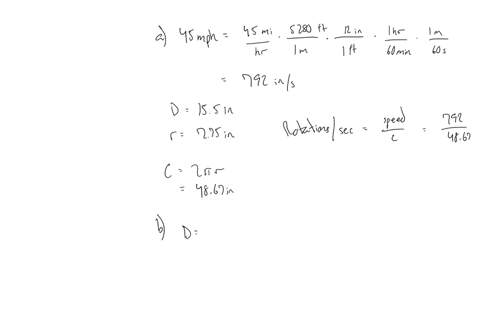 a) 45 mph = 45 mi/hr · 5280 ft/1 m · 12 in/1 ft · 1 hr/60 min · 1 m/60 s
= 792 in/s
D = 15.5 in
r = 7.75 in
Rotations/sec = speed/c = 792/48.69
C = 2πr
= 48.69 in
b) D =